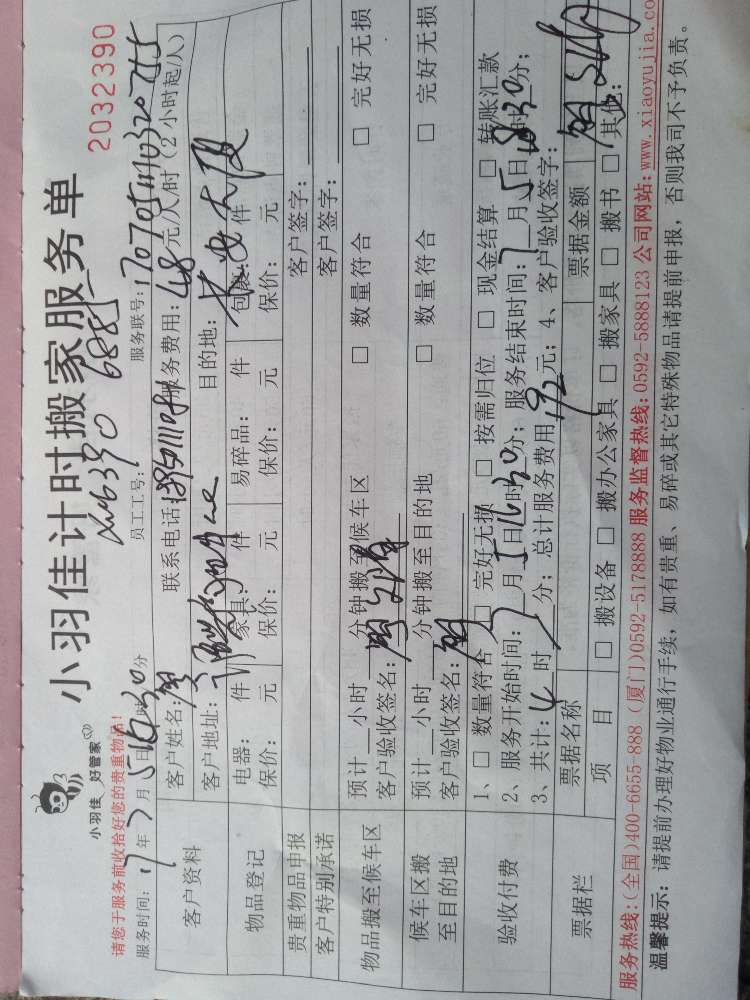 小羽佳计时搬家服务单
2032390
小羽佳 好管家
请您于服务前收拾好您的贵重物品!
服务时间: 17年7月5日16时30分 员工工号: 服务联号:
客户资料
客户姓名: 联系电话: 服务费用: 48元/人/时(2小时起/人)
客户地址: 目的地:
物品登记
电器: 件 家具: 件 易碎品: 件 包裹: 件
保价: 元 保价: 元 保价: 元 保价: 元
贵重物品申报 客户签字:
客户特别承诺 客户签字:
物品搬至候车区
预计 小时 分钟搬至候车区 □ 数量符合 □ 完好无损
客户验收签名:
候车区搬至目的地
预计 小时 分钟搬至目的地 □ 数量符合 □ 完好无损
客户验收签名:
验收付费
1、□ 数量符合 □ 完好无损 □ 按需归位 □ 现金结算 □ 转账汇款
2、服务开始时间: 7月5日16时30分; 服务结束时间: 7月5日 时30分;
3、共计: 4时 分; 总计服务费用192元; 4、客户验收签字:
票据栏
票据名称 票据金额
项 目 □ 搬设备 □ 搬办公家具 □ 搬家具 □ 搬书 □ 其他:
服务热线:(全国)400-6655-888 (厦门)0592-5178888 服务监督热线:0592-5888123 公司网站:www.xiaoyujia.co
温馨提示: 请提前办理好物业通行手续, 如有贵重、易碎或其它特殊物品请提前申报, 否则我司不予负责。